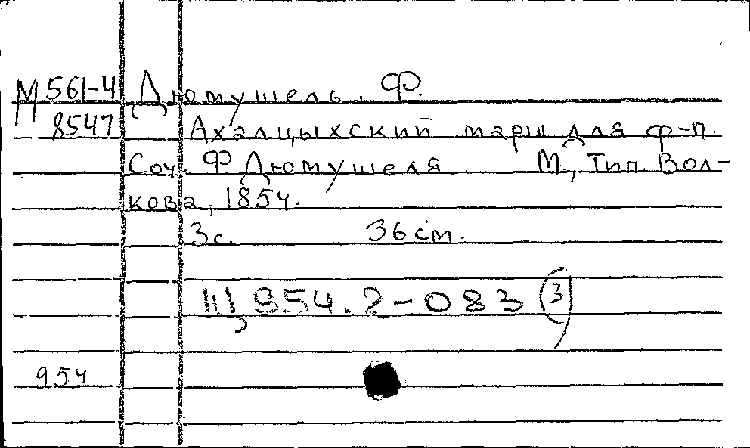 М 561-4 Дюмушель, Ф.
8547 Ахалцыхский марш для ф-п.
Соч. Ф Дюмушеля М., Тип. Вол-
кова, 1854.
3с. 36 см.
Щ954.2-083 (3)
954